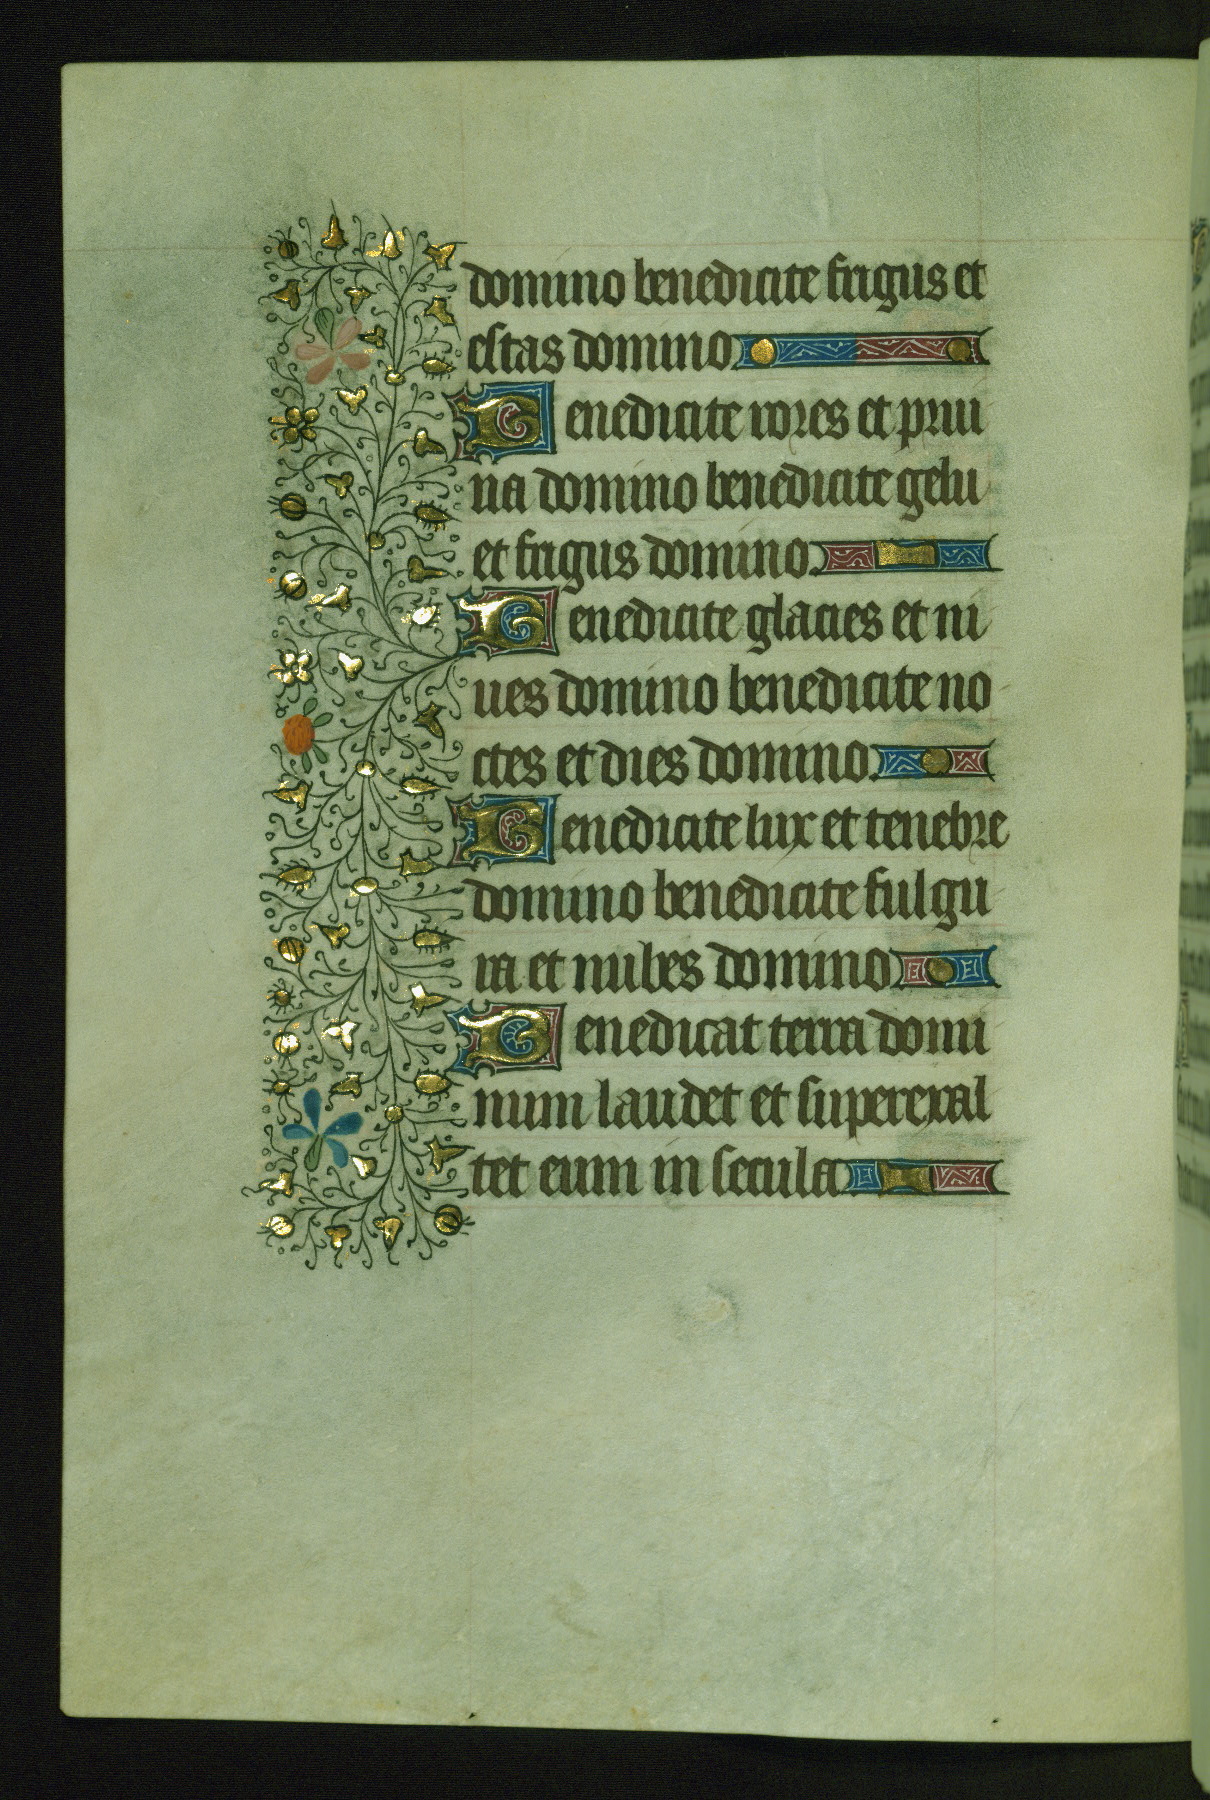 domino benedicite frigus et
estas domino
Benedicite rores et prui
na domino benedicite gelu
et frigus domino.
Benedicite glacies et ni
ues domino benedicite no
ctes et dies domino.
Benedicite lux et tenebre
domino benedicite fulgu
ra et nubes domino
Benedicat terra domi
num laudet et superexal
tet eum in secula